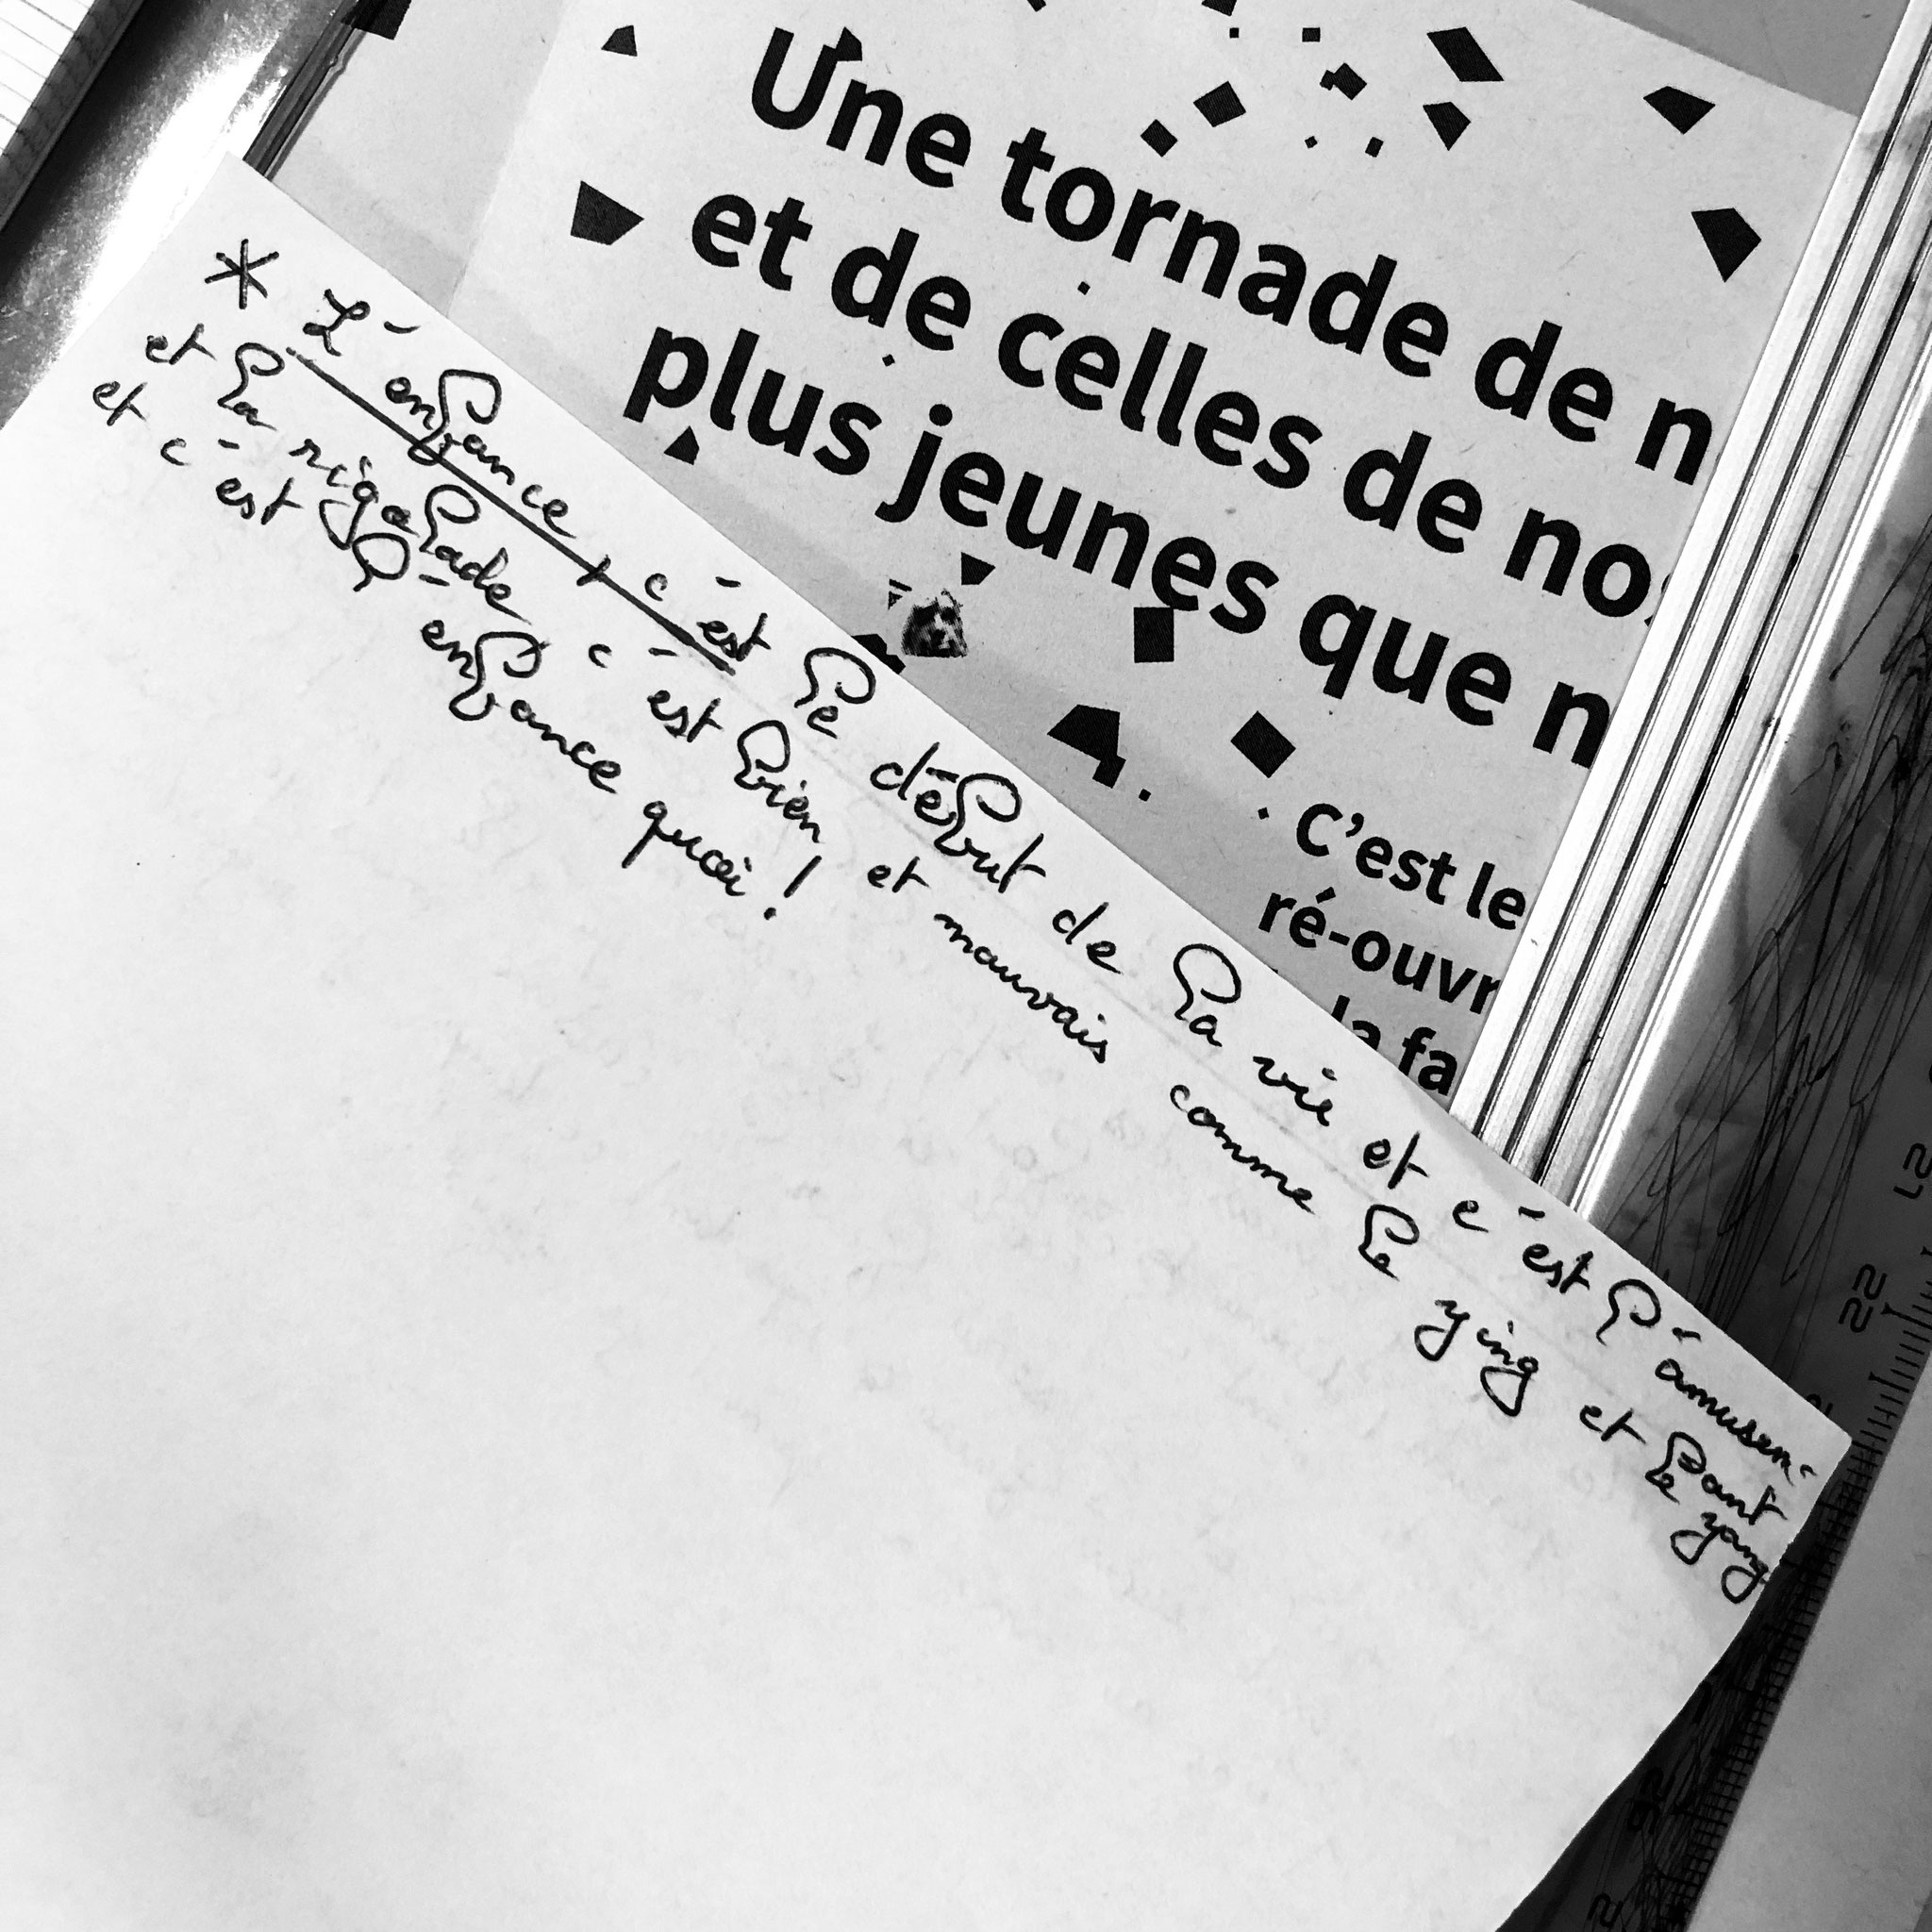 Une tornade de n
et de celles de nos
plus jeunes que n
C'est le
ré-ouvr
la fa
* L'enfance, c'est le début de la vie et c'est l'amusem-
et la rigolade, c'est bien et mauvais comme le ying et le yang
et c'est l'enfance quoi !
22